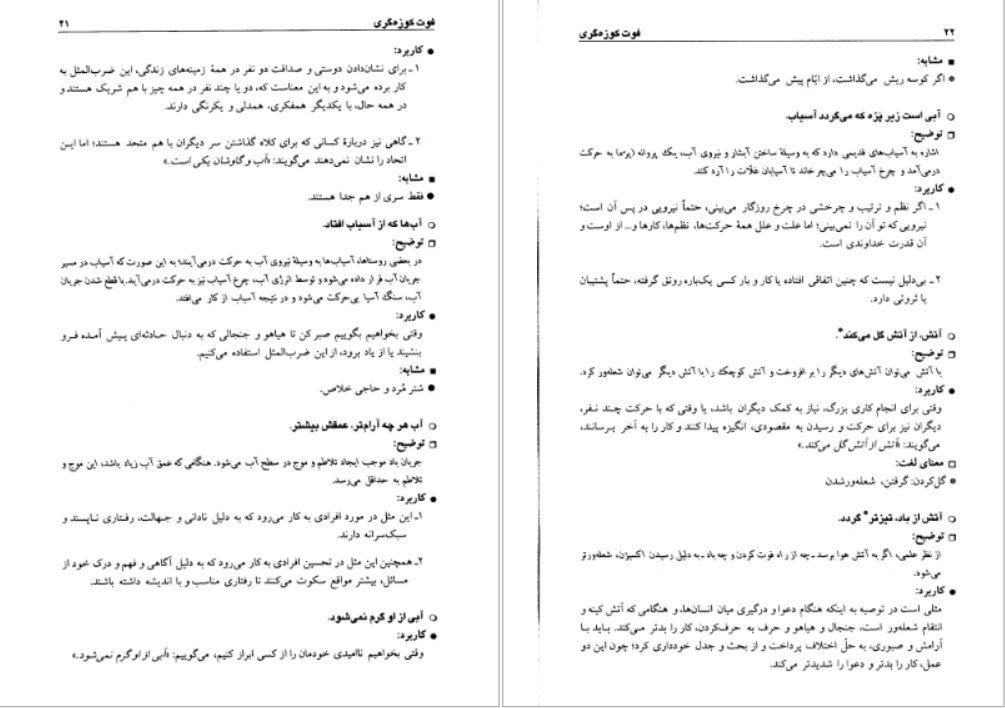 فوت کوزه‌گری ۲۱
● کاربرد:
۱ـ برای نشان‌دادن دوستی و صداقت دو نفر در همهٔ زمینه‌های زندگی، این ضرب‌المثل به
کار برده می‌شود و به این معناست که، دو یا چند نفر در همه چیز با هم شریک هستند و
در همه حال، با یکدیگر همفکری، همدلی و یکرنگی دارند.
۲ـ گاهی نیز دربارهٔ کسانی که برای کلاه گذاشتن سر دیگران با هم متحد هستند؛ اما این
اتحاد را نشان نمی‌دهند می‌گویند: «آب و گاوشان یکی است.»
■ مشابه:
● فقط سری از هم جدا هستند.
○ آب‌ها که از آسیاب افتاد.
□ توضیح:
در بعضی روستاها، آسیاب‌ها به وسیلهٔ نیروی آب به حرکت درمی‌آیند؛ به این صورت که آسیاب در مسیر
جریان آب قرار داده می‌شود و توسط انرژی آب، چرخ آسیاب نیز به حرکت درمی‌آید. با قطع شدن جریان
آب، سنگ آسیا بی‌حرکت می‌شود و در نتیجه آسیاب از کار می‌افتد.
● کاربرد:
وقتی بخواهیم بگوییم صبر کن تا هیاهو و جنجالی که به دنبال حادثه‌ای پیش آمده فرو
بنشیند یا از یاد برود، از این ضرب‌المثل استفاده می‌کنیم.
■ مشابه:
● شتر مُرد و حاجی خلاص.
○ آب هر چه آرام‌تر، عمقش بیشتر.
□ توضیح:
جریان باد موجب ایجاد تلاطم و موج در سطح آب می‌شود. هنگامی که عمق آب زیاد باشد، این موج و
تلاطم به حداقل می‌رسد.
● کاربرد:
۱ـ این مثل در مورد افرادی به کار می‌رود که به دلیل نادانی و جهالت، رفتاری ناپسند و
سبک‌سرانه دارند.
۲ـ همچنین این مثل در تحسین افرادی به کار می‌رود که به دلیل آگاهی و فهم و درک خود از
مسائل، بیشتر مواقع سکوت می‌کنند تا رفتاری مناسب و با اندیشه داشته باشند.
○ آبی از او گرم نمی‌شود.
● کاربرد:
وقتی بخواهیم ناامیدی خودمان را از کسی ابراز کنیم، می‌گوییم: «آبی از او گرم نمی‌شود.»
۲۲ فوت کوزه‌گری
■ مشابه:
* اگر کوسه ریش می‌گذاشت، از ایّام پیش می‌گذاشت.
○ آبی است زیر پَرّه که می‌گردد آسیاب.
□ توضیح:
اشاره به آسیاب‌های قدیمی دارد که به وسیلهٔ ساختن آبشار و نیروی آب، یک پروانه (پرّه) به حرکت
درمی‌آمد و چرخ آسیاب را می‌چرخاند تا آسیابان غلّات را آرد کند.
● کاربرد:
۱ـ اگر نظم و ترتیب و چرخشی در چرخ روزگار می‌بینی، حتماً نیرویی در پس آن است؛
نیرویی که تو آن را نمی‌بینی؛ اما علت و علل همهٔ حرکت‌ها، نظم‌ها، کارها و... از اوست و
آن قدرت خداوندی است.
۲ـ بی‌دلیل نیست که چنین اتفاقی افتاده یا کار و بار کسی یک‌باره رونق گرفته، حتماً پشتیبان
یا ثروتی دارد.
○ آتش، از آتش گل می‌کند*.
□ توضیح:
با آتش می‌توان آتش‌های دیگر را بر افروخت و آتش کوچک را با آتش دیگر می‌توان شعله‌ور کرد.
● کاربرد:
وقتی برای انجام کاری بزرگ، نیاز به کمک دیگران باشد، یا وقتی که با حرکت چند نفر،
دیگران نیز برای حرکت و رسیدن به مقصودی، انگیزه پیدا کنند و کار را به آخر برسانند،
می‌گویند: «آتش از آتش گل می‌کند.»
□ معنای لغت:
* گل‌کردن: گرفتن، شعله‌ورشدن
○ آتش از باد، تیزتر* گردد.
□ توضیح:
از نظر علمی، اگر به آتش هوا برسد ـ چه از راه فوت کردن و چه باد ـ به دلیل رسیدن اکسیژن، شعله‌ورتر
می‌شود.
● کاربرد:
مثلی است در توصیه به اینکه هنگام دعوا و درگیری میان انسان‌ها، و هنگامی که آتش کینه و
انتقام شعله‌ور است، جنجال و هیاهو و حرف به حرف‌کردن، کار را بدتر می‌کند. باید با
آرامش و صبوری، به حلّ اختلاف پرداخت و از بحث و جدل خودداری کرد؛ چون این دو
عمل، کار را بدتر و دعوا را شدیدتر می‌کند.